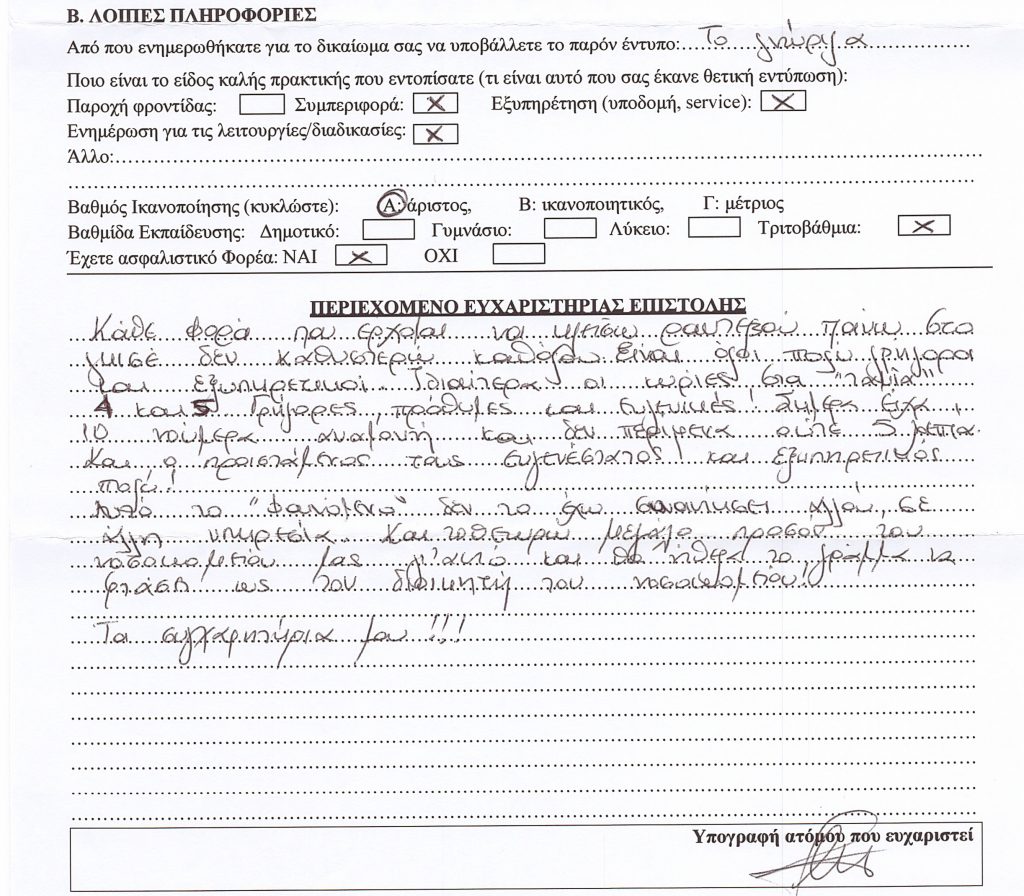 Β. ΛΟΙΠΕΣ ΠΛΗΡΟΦΟΡΙΕΣ
Από που ενημερωθήκατε για το δικαίωμα σας να υποβάλλετε το παρόν έντυπο: Το γνώριζα
Ποιο είναι το είδος καλής πρακτικής που εντοπίσατε (τι είναι αυτό που σας έκανε θετική εντύπωση):
Παροχή φροντίδας: Συμπεριφορά: X Εξυπηρέτηση (υποδομή, service): X
Ενημέρωση για τις λειτουργίες/διαδικασίες: X
Άλλο:
Βαθμός Ικανοποίησης (κυκλώστε): Α: άριστος, Β: ικανοποιητικός, Γ: μέτριος
Βαθμίδα Εκπαίδευσης: Δημοτικό: Γυμνάσιο: Λύκειο: Τριτοβάθμια: X
Έχετε ασφαλιστικό Φορέα: ΝΑΙ X ΟΧΙ
ΠΕΡΙΕΧΟΜΕΝΟ ΕΥΧΑΡΙΣΤΗΡΙΑΣ ΕΠΙΣΤΟΛΗΣ
Κάθε φορά που έρχομαι να κλείσω ραντεβού πάνω στο
γκισέ δεν καθυστερώ καθόλου. Είναι όλοι πολύ γρήγοροι
και εξυπηρετικοί. Ιδιαίτερα οι κυρίες στα "ταμεία"
4 και 5 Γρήγορες, πρόθυμες και ευγενικές! Σήμερα είχα
10 νούμερα αναμονή και δεν περίμενα ούτε 5 λεπτά.
Και ο προιστάμενος τους ευγενέστατος! και εξυπηρετικός
πολύ!
Αυτό το "φαινόμενο" δεν το έχω συναντήσει αλλού, σε
άλλη υπηρεσία. Και το θεωρώ μεγάλο προσόν του
νοσοκομείου μας γι'αυτό και θα ήθελα το γράμμα να
φτάσει ως τον διοικητή του νοσοκομείου!
Τα συγχαρητήρια μου!!!
Υπογραφή ατόμου που ευχαριστεί